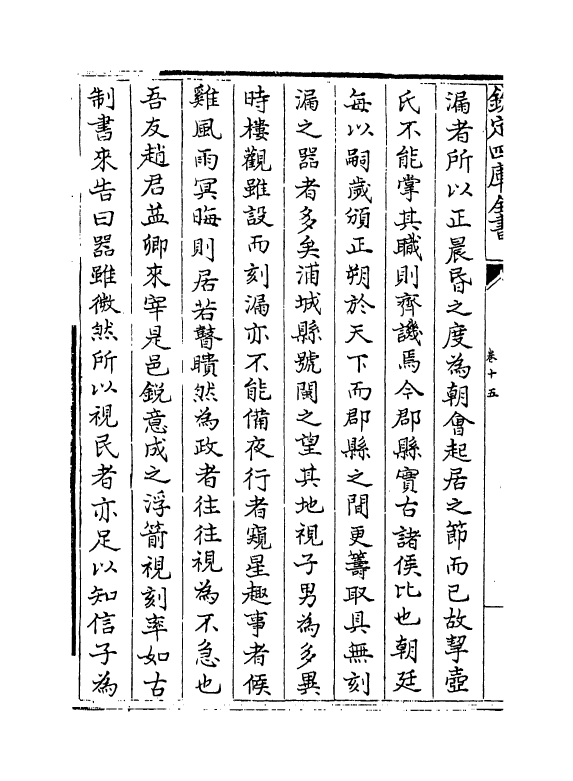 欽定四庫全書
卷十五
漏者所以正晨昏之度為朝會起居之節而已故挈壺
氏不能掌其職則齊譏焉今郡縣實古諸侯比也朝廷
每以嗣歲頒正朔於天下而郡縣之間更籌取具無刻
漏之器者多矣浦城縣號閩之望其地視子男為多異
時樓觀雖設而刻漏亦不能備夜行者窺星趣事者候
雞風雨冥晦則居若瞽聵然為政者往往視為不急也
吾友趙君益卿來宰是邑鋭意成之浮箭視刻率如古
制書來告曰器雖微然所以視民者亦足以知信子為